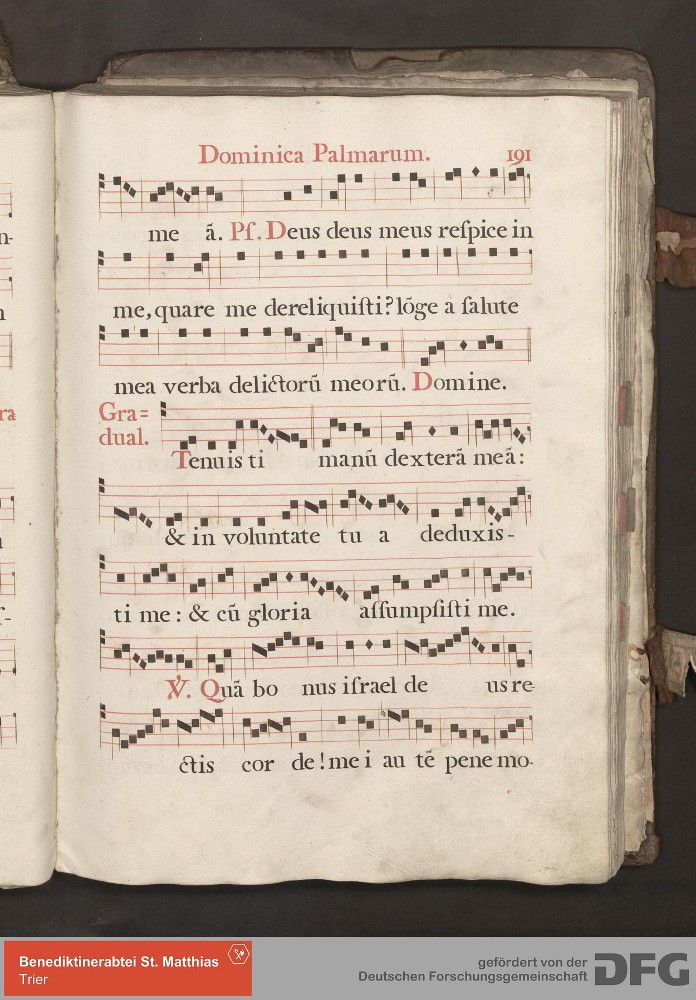 Dominica Palmarum. 191
me ã. Pſ. Deus deus meus reſpice in
me, quare me dereliquiſti? lõge à ſalute
mea verba delictorũ meorũ. Domine.
Gra=
dual.
Tenuis ti manũ dexterã meã:
& in voluntate tu a deduxis-
ti me: & cũ gloria aſſumpſiſti me.
℣. Quã bo nus iſrael de us re-
ctis cor de! me i au tẽ pene mo-
Benediktinerabtei St. Matthias
Trier
gefördert von der
Deutschen Forschungsgemeinschaft
DFG